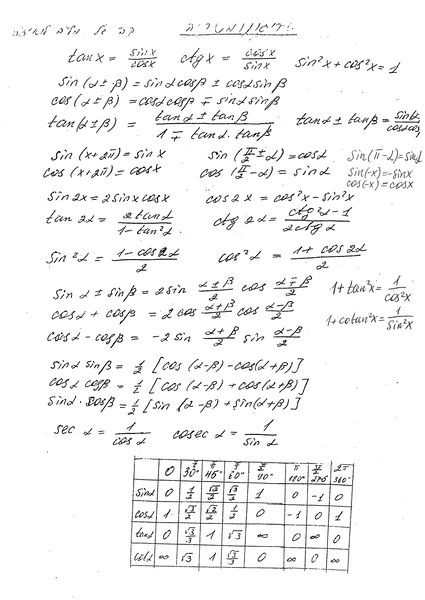 טריגונומטריה
tan x = sin x / cos x   ctg x = cos x / sin x   sin²x + cos²x = 1
sin (α ± β) = sin α cos β ± cos α sin β
cos (α ± β) = cos α cos β ∓ sin α sin β
tan (α ± β) = (tan α ± tan β) / (1 ∓ tan α · tan β)   tan α ± tan β =
sin (x + 2π) = sin x   sin (π/2 ± α) = cos α   sin (π - α) = sin α
cos (x + 2π) = cos x   cos (π/2 - α) = sin α   sin (-x) = - sin x
cos (-x) = cos x
sin 2x = 2 sin x cos x   cos 2x = cos²x - sin²x
tan 2α = 2 tan α / (1 - tan²α)   ctg 2α = (ctg²α - 1) / (2 ctg α)
sin²α = (1 - cos 2α) / 2   cos²α = (1 + cos 2α) / 2
sin α ± sin β = 2 sin (α ± β)/2 cos (α ∓ β)/2   1 + tan²x = 1 / cos²x
cos α + cos β = 2 cos (α + β)/2 cos (α - β)/2   1 + cotan²x = 1 / sin²x
cos α - cos β = -2 sin (α + β)/2 sin (α - β)/2
sin α sin β = 1/2 [cos (α - β) - cos (α + β)]
cos α cos β = 1/2 [cos (α - β) + cos (α + β)]
sin α · cos β = 1/2 [sin (α - β) + sin (α + β)]
sec α = 1 / cos α   cosec α = 1 / sin α
0   30°   45°   60°   π/2 90°   π 180°   3π/2 270   2π 360°
sin α   0   1/2   √2/2   √3/2   1   0   -1   0
cos α   1   √3/2   √2/2   1/2   0   -1   0   1
tan α   0   √3/3   1   √3   ∞   0   ∞   0
cot α   ∞   √3   1   √3/3   0   ∞   0   ∞